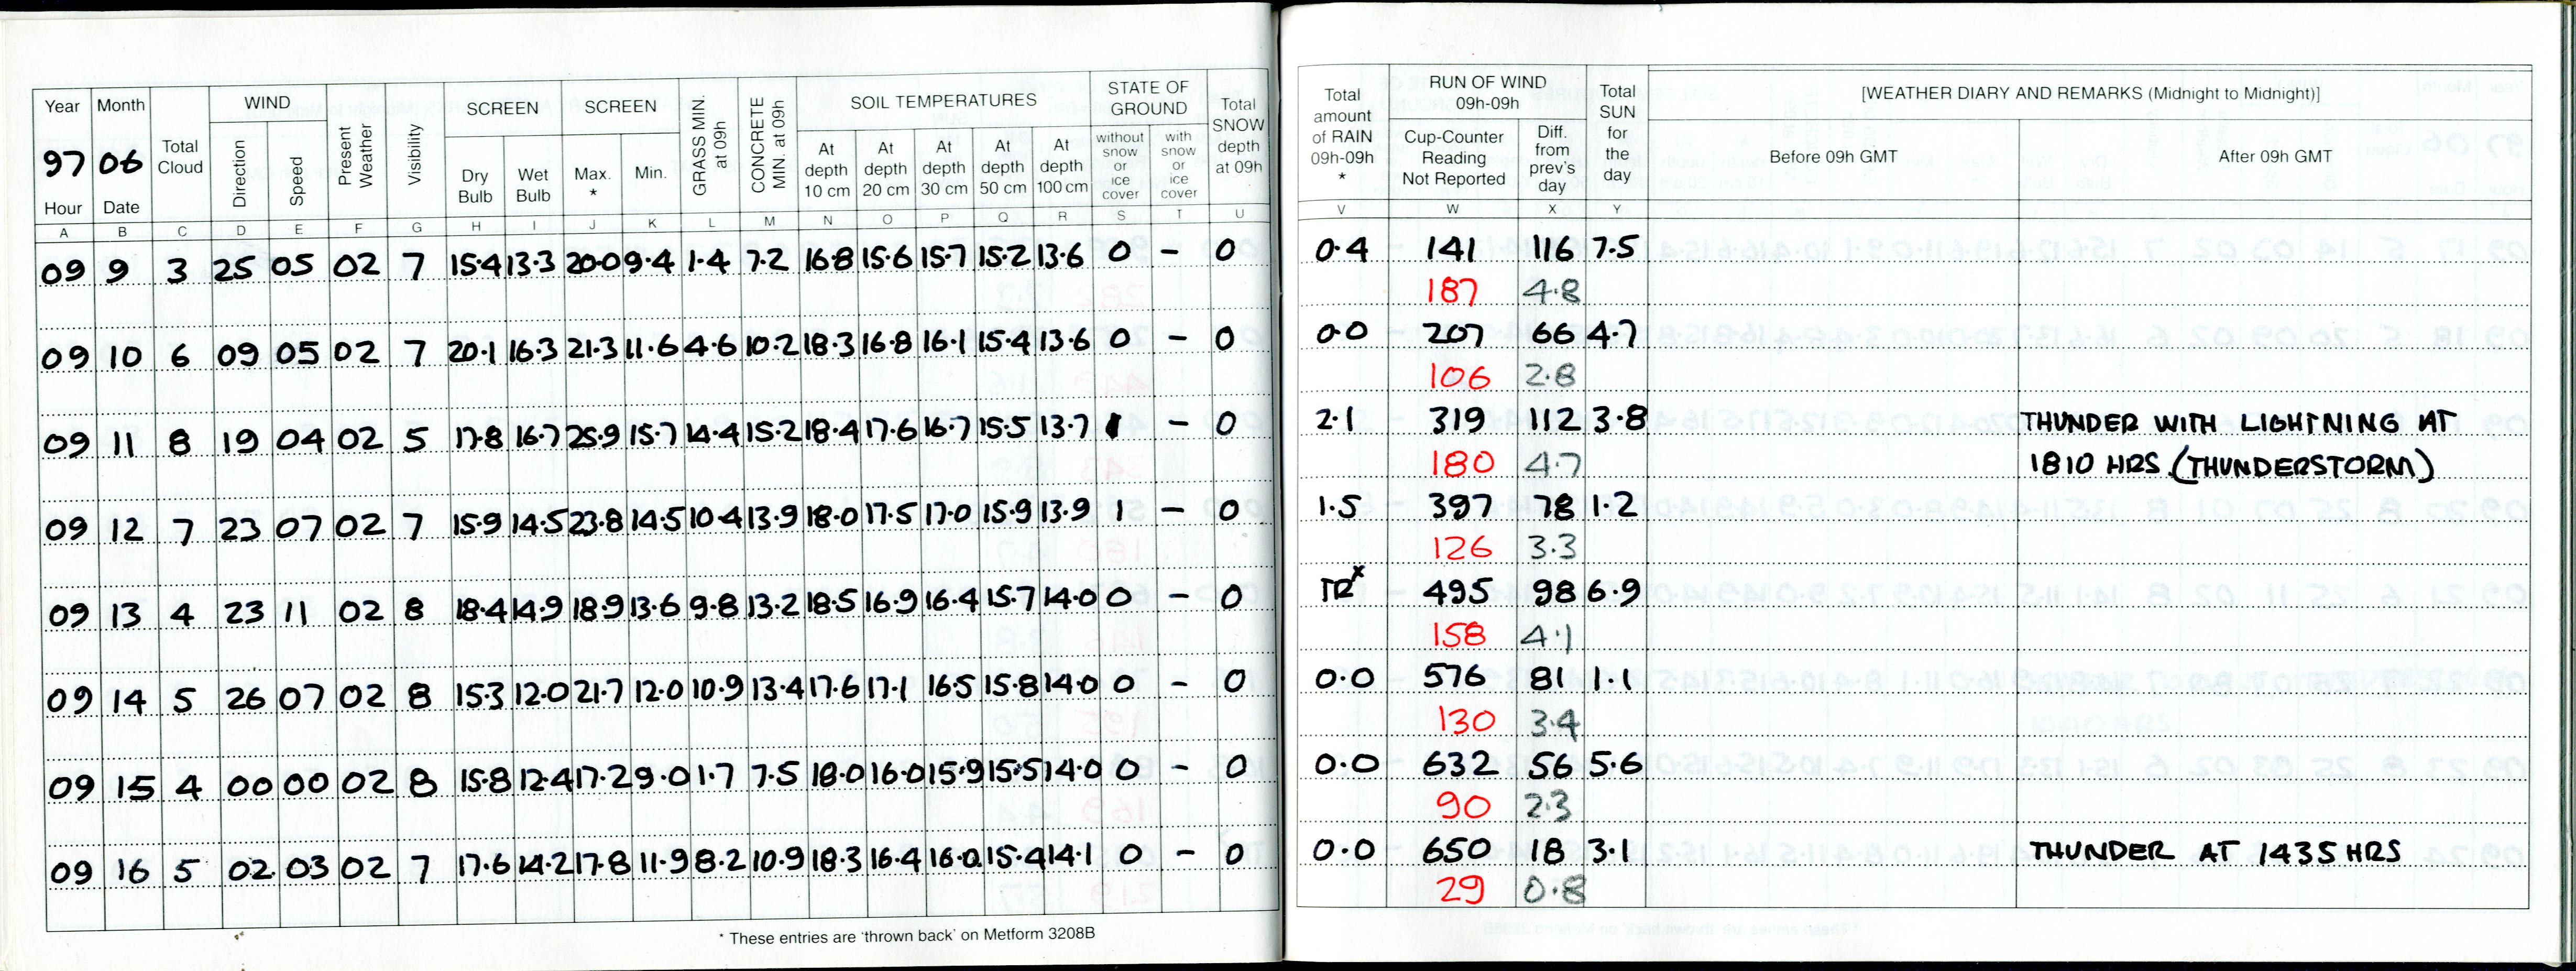 Year Month Total Cloud WIND Present Weather Visibility SCREEN SCREEN GRASS MIN. at 09h CONCRETE MIN. at 09h SOIL TEMPERATURES STATE OF GROUND Total SNOW depth at 09h Total amount of RAIN 09h-09h * RUN OF WIND 09h-09h Total SUN for the day [WEATHER DIARY AND REMARKS (Midnight to Midnight)]
97 06 Direction Speed Dry Bulb Wet Bulb Max. * Min. At depth 10 cm At depth 20 cm At depth 30 cm At depth 50 cm At depth 100 cm without snow or ice cover with snow or ice cover Cup-Counter Reading Not Reported Diff. from prev's day Before 09h GMT After 09h GMT
Hour Date
A B C D E F G H I J K L M N O P Q R S T U V W X Y
09 9 3 25 05 02 7 15.4 13.3 20.0 9.4 1.4 7.2 16.8 15.6 15.7 15.2 13.6 0 - 0 0.4 141 116 7.5
187 4.8
09 10 6 09 05 02 7 20.1 16.3 21.3 11.6 4.6 10.2 18.3 16.8 16.1 15.4 13.6 0 - 0 0.0 207 66 4.7
106 2.8
09 11 8 19 04 02 5 17.8 16.7 25.9 15.7 14.4 15.2 18.4 17.6 16.7 15.5 13.7 1 - 0 2.1 319 112 3.8 THUNDER WITH LIGHTNING AT
180 4.7 1810 HRS (THUNDERSTORM)
09 12 7 23 07 02 7 15.9 14.5 23.8 14.5 10.4 13.9 18.0 17.5 17.0 15.9 13.9 1 - 0 1.5 397 78 1.2
126 3.3
09 13 4 23 11 02 8 18.4 14.9 18.9 13.6 9.8 13.2 18.5 16.9 16.4 15.7 14.0 0 - 0 TR x 495 98 6.9
158 4.1
09 14 5 26 07 02 8 15.3 12.0 21.7 12.0 10.9 13.4 17.6 17.1 16.5 15.8 14.0 0 - 0 0.0 576 81 1.1
130 3.4
09 15 4 00 00 02 8 15.8 12.4 17.2 9.0 1.7 7.5 18.0 16.0 15.9 15.5 14.0 0 - 0 0.0 632 56 5.6
90 2.3
09 16 5 02 03 02 7 17.6 14.2 17.8 11.9 8.2 10.9 18.3 16.4 16.0 15.4 14.1 0 - 0 0.0 650 18 3.1 THUNDER AT 1435 HRS
29 0.8
* These entries are 'thrown back' on Metform 3208B